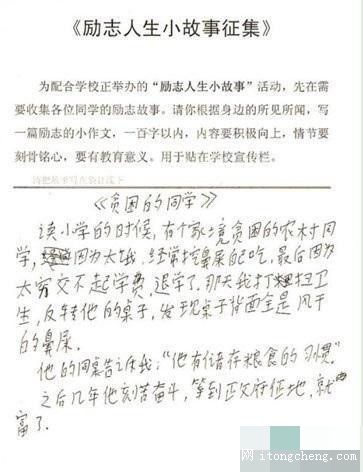 《励志人生小故事征集》
为配合学校正举办的“励志人生小故事”活动，先在需
要收集各位同学的励志故事。请你根据身边的所见所闻，写
一篇励志的小作文，一百字以内，内容要积极向上，情节要
刻骨铭心，要有教育意义。用于贴在学校宣传栏。
《贫困的同学》
读小学的时候，有个家境贫困的农村同
学，因为太饿，经常挖鼻屎自己吃，最后因为
太穷交不起学费，退学了。那天我打扫卫
生，反转他的桌子，发现桌子背面全是风干
的鼻屎。
他的同桌告诉我：“他有储存粮食的习惯”。
之后几年他刻苦奋斗，等到正政府征地，就
富了。
网 itongcheng.com